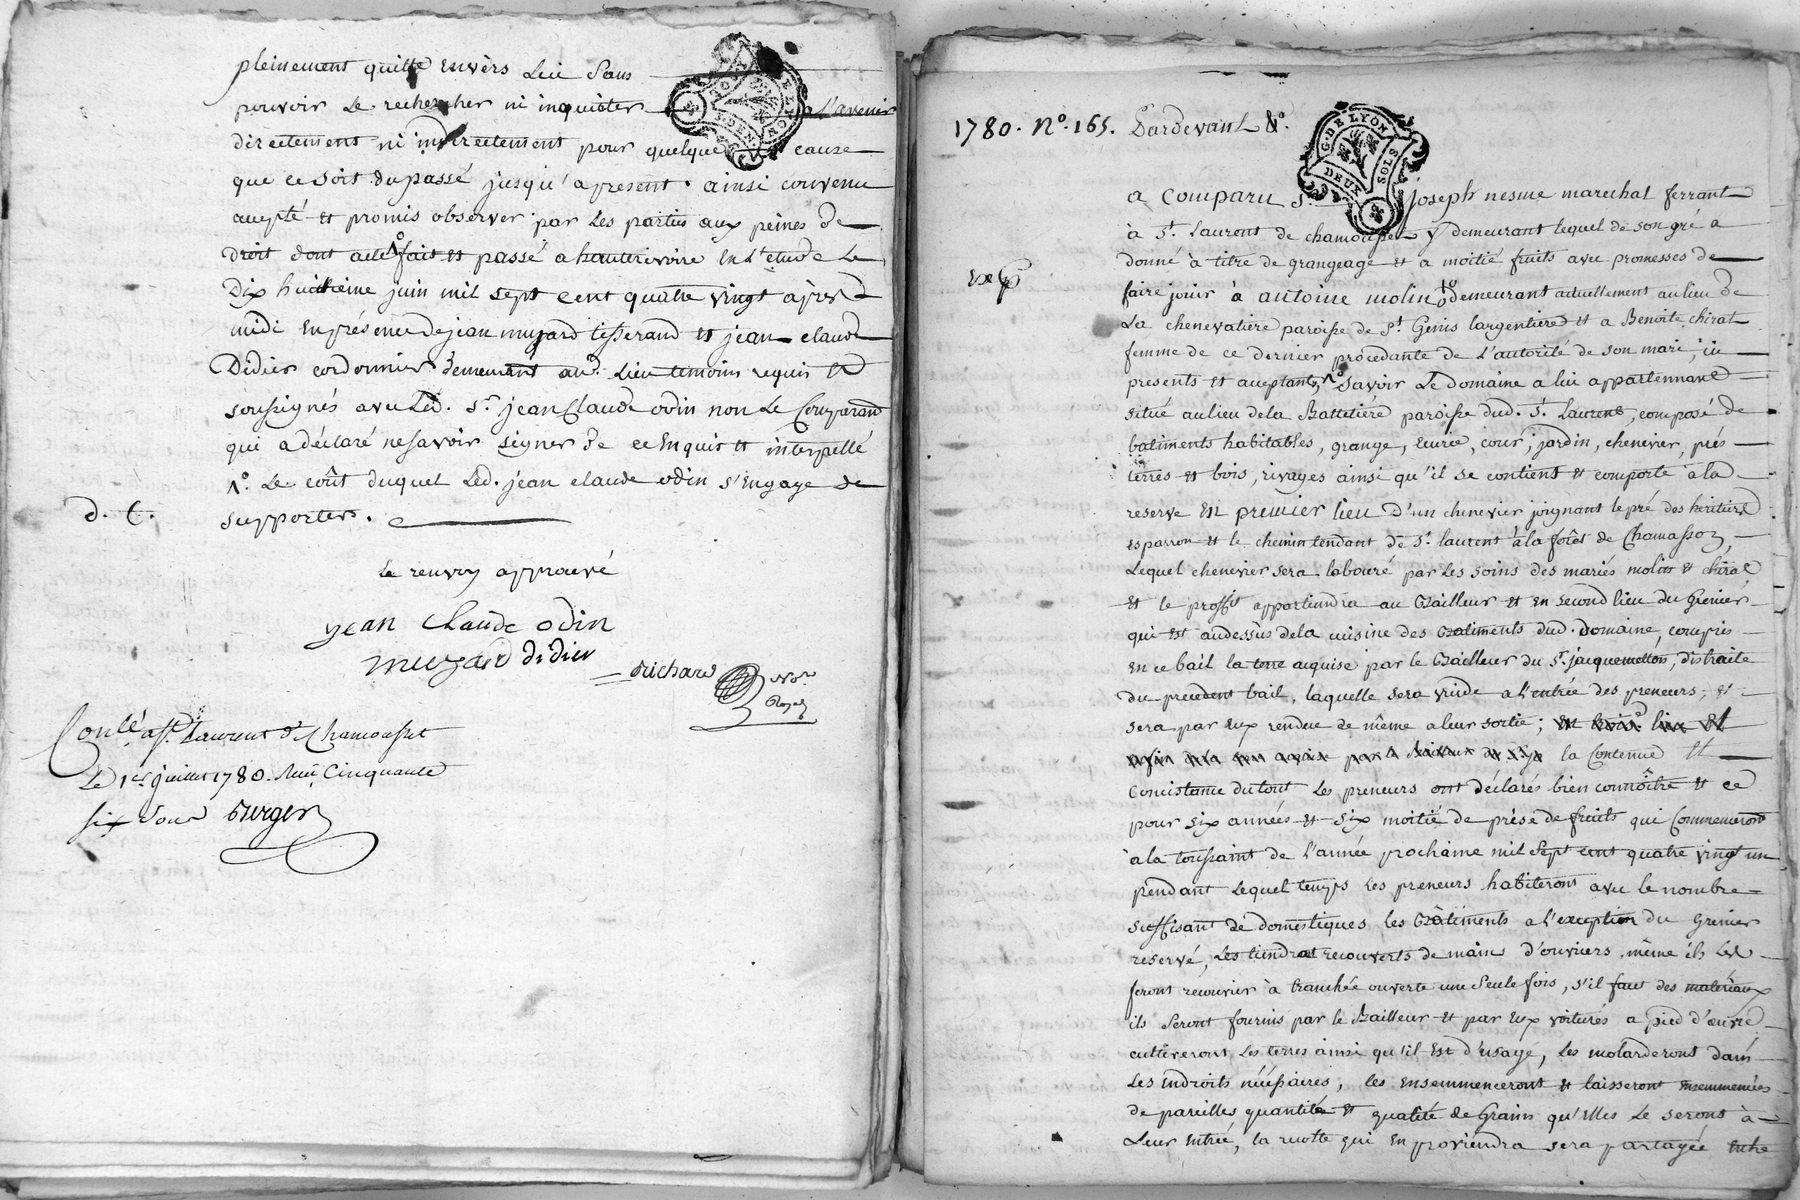 pleinement quitte envèrs Lui Sans
pouvoir Le rechercher ni inquiéter a l'avenir
directement ni indirectement pour quelque cause
que ce Soit du passé jusqu'apresent. ainsi convenu
accepté et promis observer par Les parties aux peines de
droit dont acte fait et passé a hauterivoire En L'étude Le
Dix huitième juin mil sept cent quatre vingt aprés
midi En présence de jean muzard tisserand et jean claude
Didier cordonnier demeurant aud. Lieu temoins requis et
soussignés avec Led. Sr. jean Claude odin non Le Comparant
qui a déclaré ne savoir signer de ce Enquis et interpellé
Le coût duquel Led. jean claude odin s'Engage de
supporter.
d. C.
Le renvoy approuvé
jean Claude odin
muzard didier
Richard
Conlé. a St. Laurent de Chamousset
Le 1er juillet 1780. Reçu Cinquante
six sous
G. DE LYON
DEUX SOLS
1780. No. 165. Pardevant &c.
a Comparu Sr. Joseph nesme marechal ferrant
à St. Laurent de chamousset y demeurant lequel de son gré a
donné à titre de grangeage et a moitié fruits avec promesses de
Exp.
faire jouir à antoine molin demeurant actuellement au lieu de
La chenevatiere paroisse de St. Genis largentiere et a Benoite chirat
femme de ce dernier procedante de L'autorité de son mari, ici
presents et acceptants, Savoir Le Domaine a lui appartenant
situé au lieu de la Battetiére paroisse dud. St. Laurent, composé de
batiments habitables, grange, Ecurie, cour, jardin, chenevier, prés
terres et bois, rivages ainsi qu'il se contient et comporte à la
reserve En premier lieu D'un chenevier joignant le pré des heritiers
esparron et le chemin tendant de St. laurent à la forêt de Chamasson,
Lequel chenevier sera labouré par Les soins des mariés molin et chirat
et le proffit appartiendra au Bailleur et en second lieu du Grenier
qui est audessus de la cuisine des Batiments dud. domaine, compris
en ce bail la terre acquise par le Bailleur du Sr. jacquemetton, distraite
du precedent bail, laquelle sera vuide a l'entrée des preneurs, et
sera par eux rendue de même a leur sortie;
la Contenue et
Concistance du tout Les preneurs ont déclarés bien connoître et ce
pour six années et six moitié de prise de fruits qui Commenceront
à la toussaint de l'année prochaine mil Sept cent quatre vingt un
pendant Lequel temps Les preneurs habiteront avec le nombre
suffisant de domestiques les Bâtiments a l'exception du Grenier
reservé, Les tiendront recouverts de main d'ouvriers même ils Les
feront recouvrir à tranchée ouverte une Seule fois, s'il faut des matériaux
ils Seront fournis par le Bailleur et par Eux voiturés a pied d'œuvre
cultiveront Les terres ainsi qu'il Est d'usage, Les molarderont dans
Les Endroits nécéssaires, les Ensemmenceront et laisseront Ensemmencées
de pareilles quantité et qualité de Grains qu'Elles Le seront à
Leur Entrée, La recolte qui En proviendra sera partagée Entre